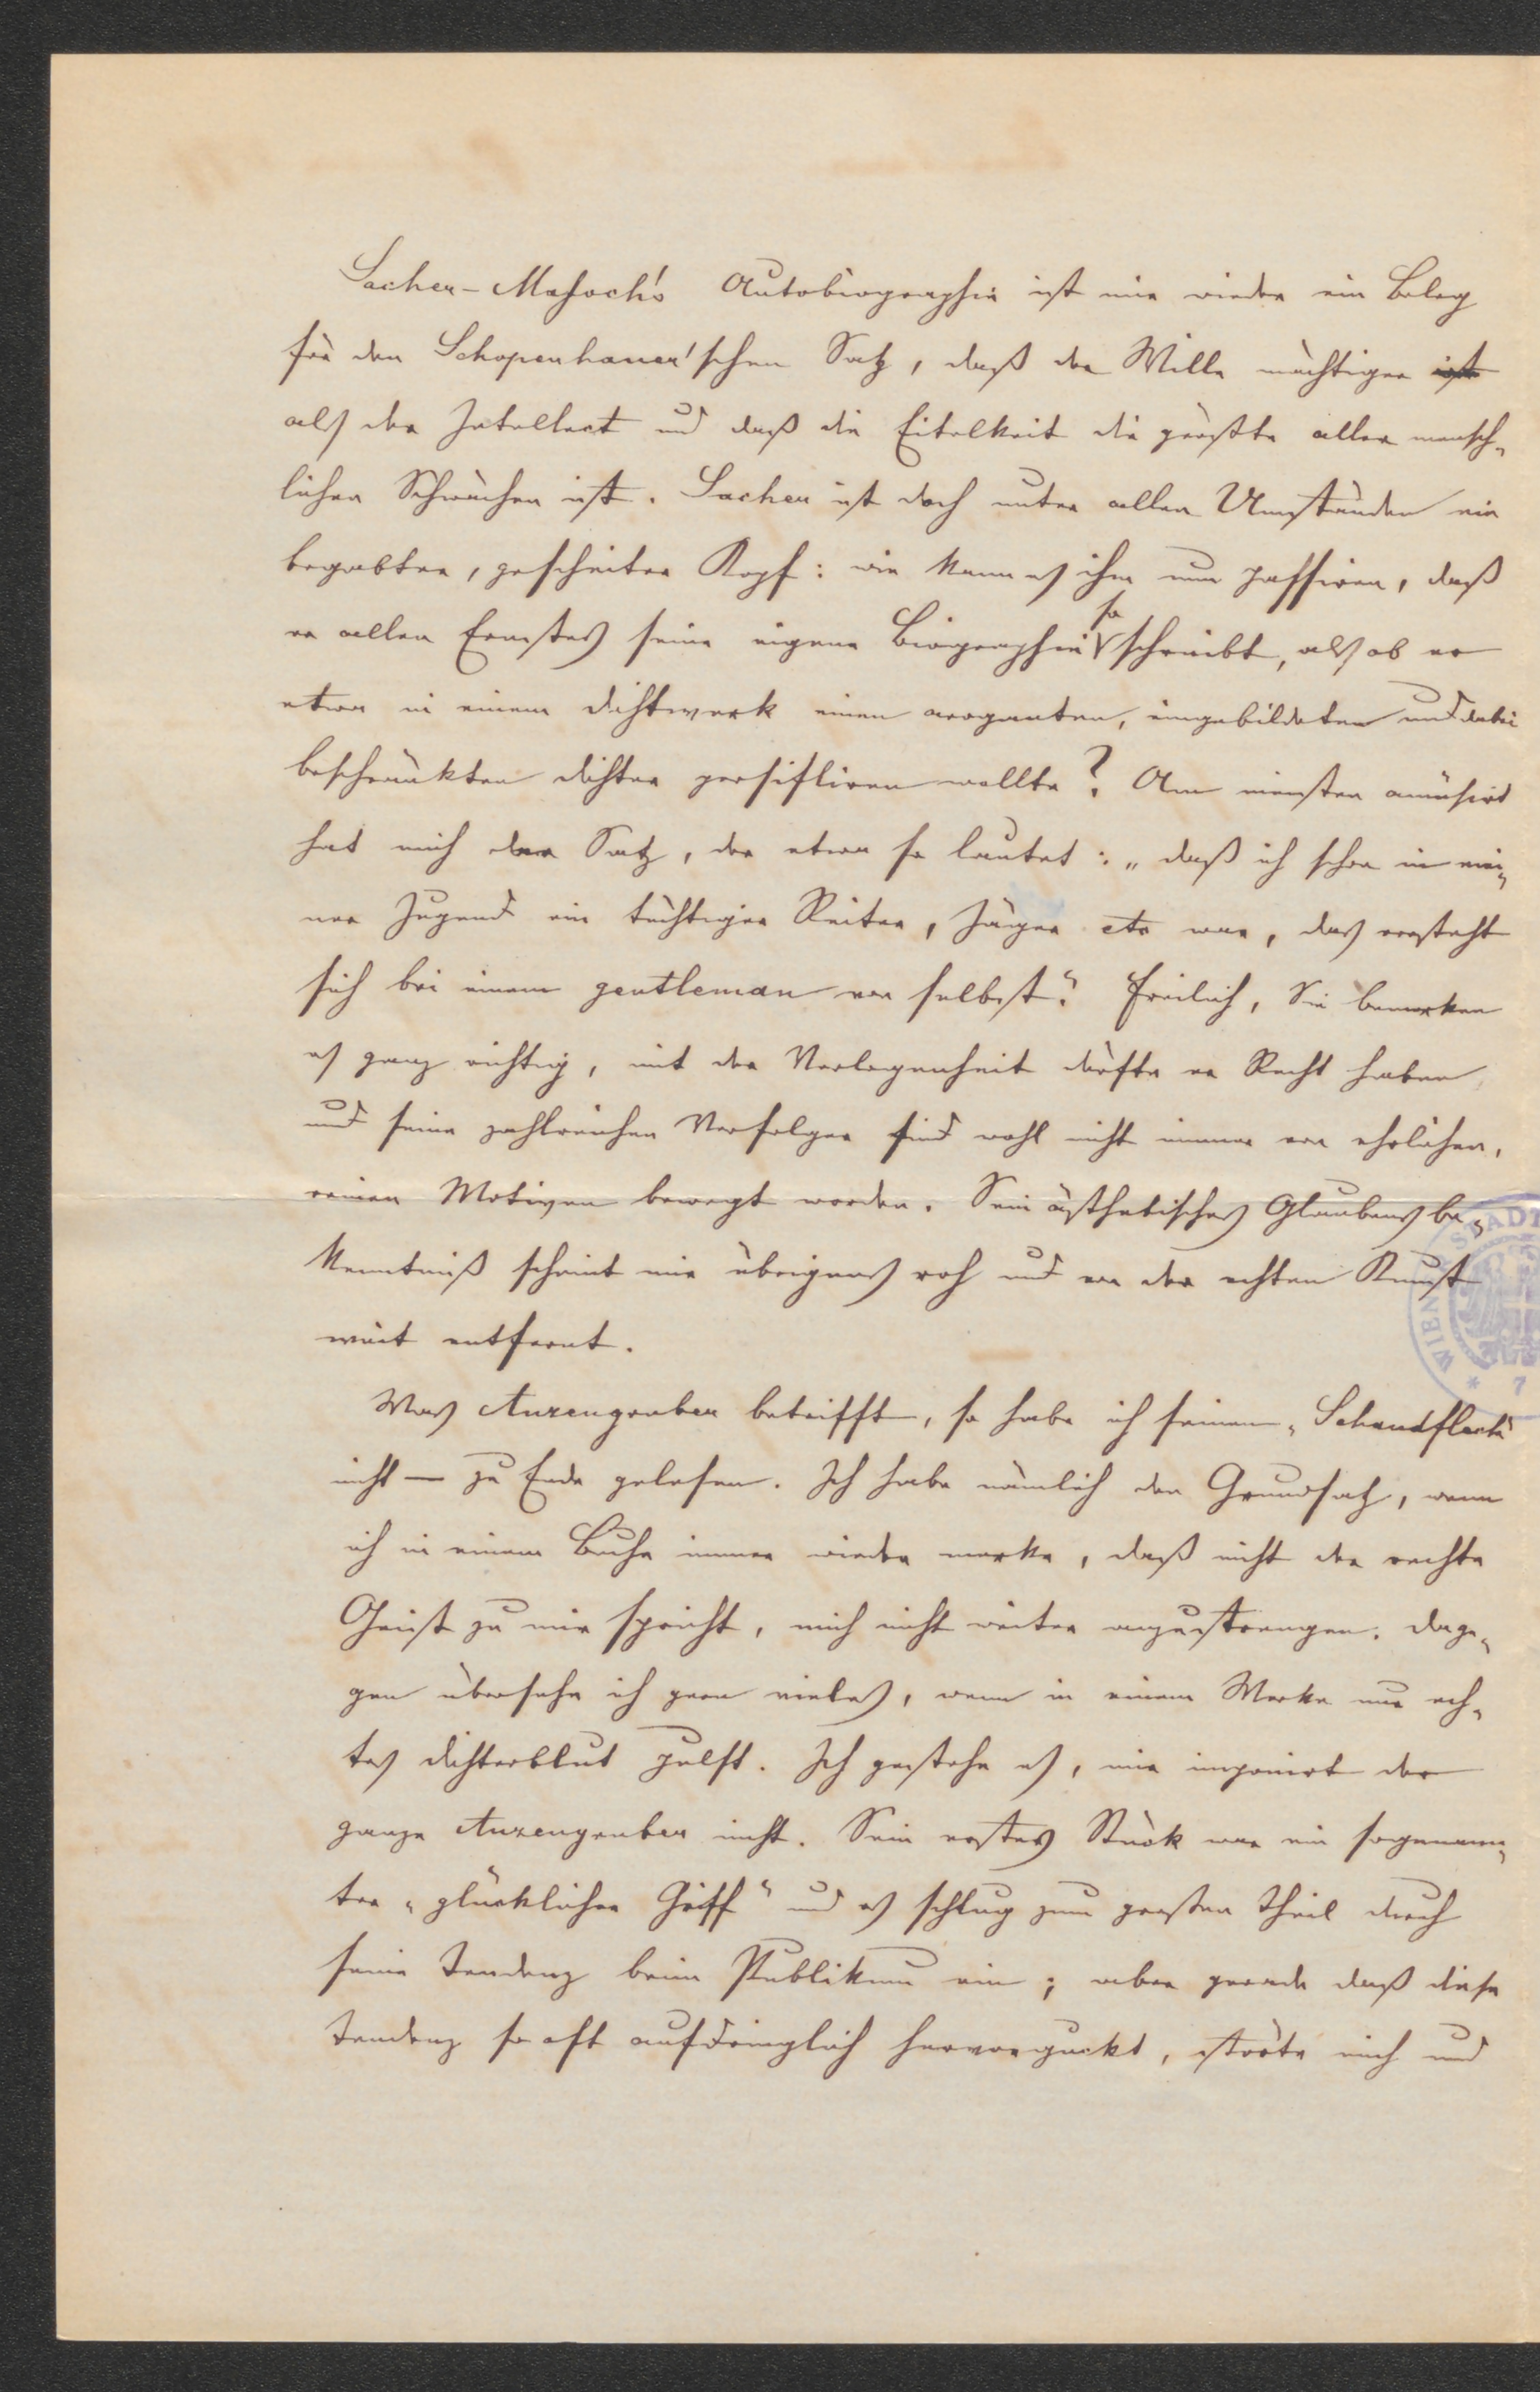 Sacher-Masoch's Autobiographie ist mir wieder ein Beleg
für den Schopenhauer'schen Satz, daß der Wille mächtiger ist
als der Intellect und daß die Eitelkeit die größte aller mensch-
lichen Schwächen ist. Sacher ist doch unter allen Umständen ein
begabter, gescheiter Kopf: wie kann es ihm nun passiren, daß
er allen Ernstes seine eigene Biographie so schreibt, als ob er
etwa in einem Dichtwerk einen arroganten, eingebildeten und dabei
beschränkten Dichter persifliren wollte? Am meisten amüsirt
hat mich der Satz, der etwa so lautet: „daß ich schon in mei-
ner Jugend ein tüchtiger Reiter, Jäger etc war, das versteht
sich bei einem gentleman von selbst." Freilich, Sie bemerken
es ganz richtig, mit der Verlogenheit dürfte er Recht haben
und seine zahlreichen Verfolger sind wohl nicht immer von ehrlichen,
reinen Motiven bewegt worden. Sein ästhetisches Glaubensbe-
kenntniß scheint mir übrigens roh und von der echten Kunst
weit entfernt.
Was Anzengruber betrifft, so habe ich seinen „Schandfleck"
nicht — zu Ende gelesen. Ich habe nämlich den Grundsatz, wenn
ich in einem Buche immer wieder merke, daß nicht der rechte
Geist zu mir spricht, mich nicht weiter anzustrengen. Dage-
gen übersehe ich gern vieles, wenn in einem Werke nur ech-
tes Dichterblut pulst. Ich gestehe es, mir imponirt der
ganze Anzengruber nicht. Sein erstes Stück war ein sogenann-
ter „glücklicher Griff" und es schlug zum großen Theil durch
seine Tendenz beim Publikum ein; aber gerade daß diese
Tendenz so oft aufdringlich hervorguckt, störte mich und
WIENER STADT
* 7